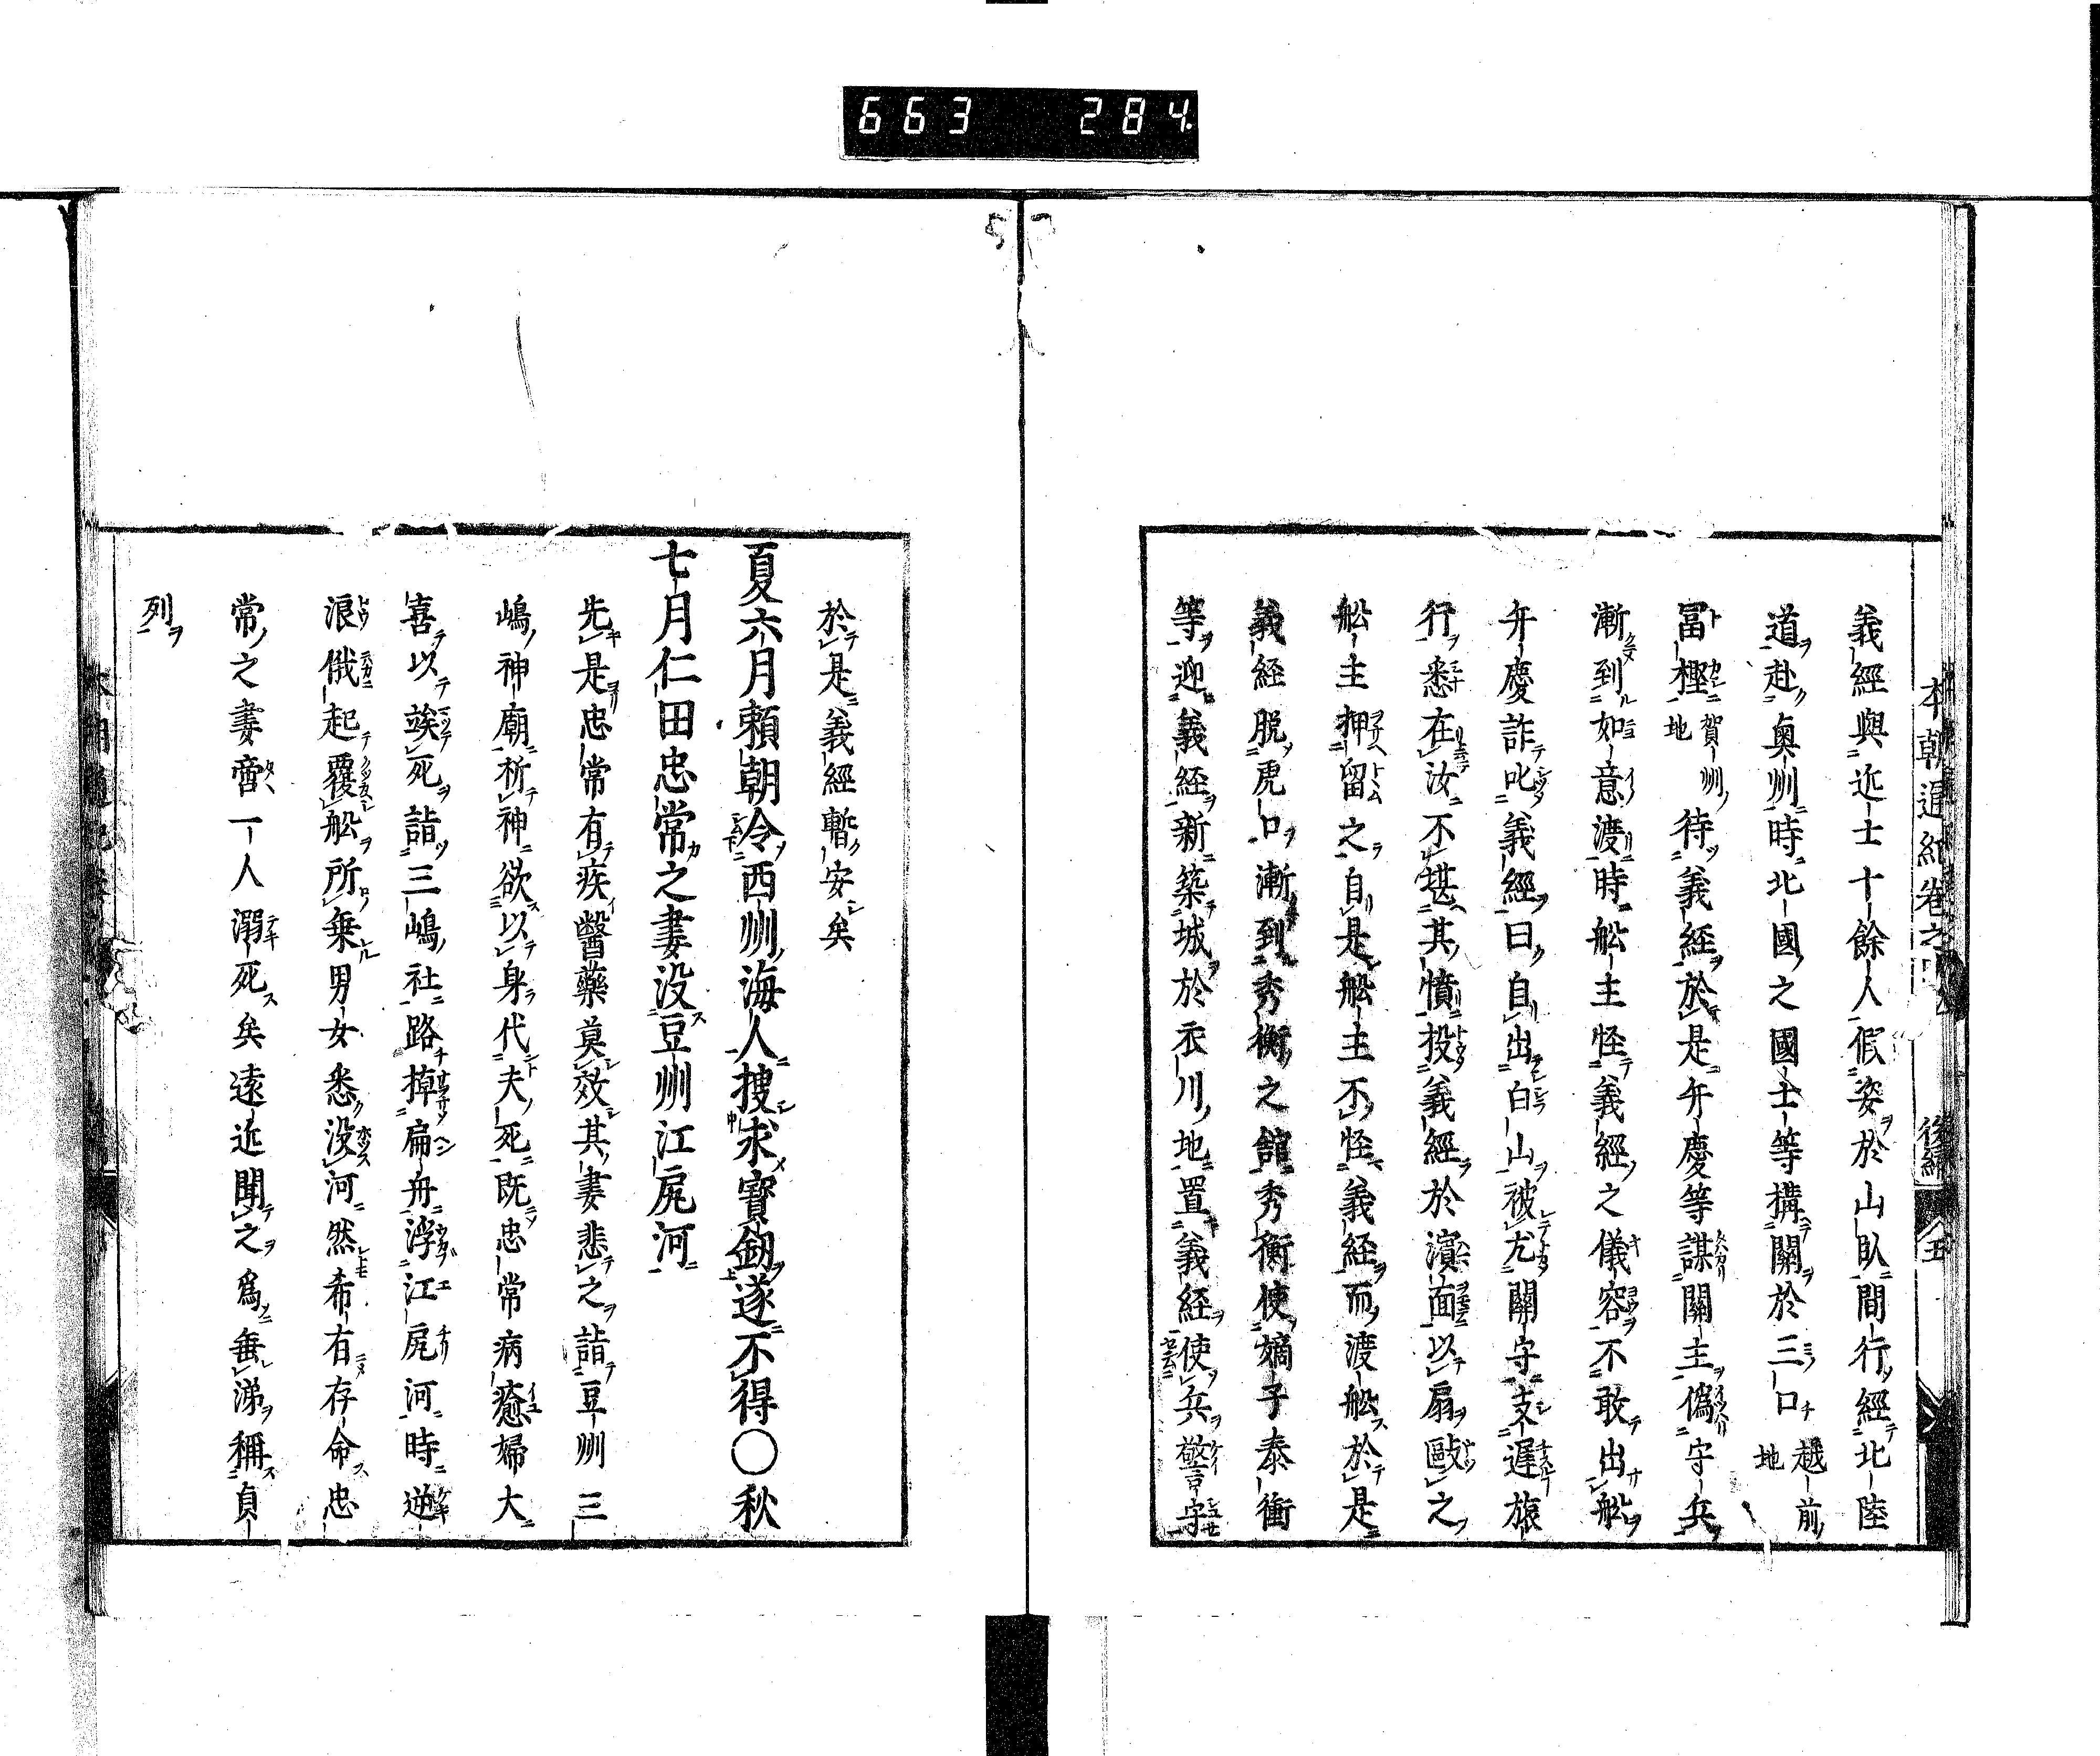 663 284
本朝通紀卷之 後編 五
義經與近士十餘人假姿於山臥間行經北陸
道赴奥州時北國之國士等搆關於三口越前地
冨樫賀州地待義經於是弁慶等謀關主僞守兵
漸到如意渡時舩主怪義經之儀容不敢出舩
弁慶詐叱義經曰自出白山被尤關守支遲旅
行悉在汝不堪其憤投義經於濵面以扇毆之
舩主押留之自是舩主不怪義経而渡舩於是
義経脱虎口漸到秀衡之舘秀衡使嫡子泰衡
等迎義経新築城於衣川地置義経使兵警守
於是義經暫安矣
夏六月頼朝令西州海人搜求寳劔遂不得〇秋
七月仁田忠常之妻没豆州江尻河
先是忠常有疾醫藥莫效其妻悲之詣豆州三
嶋神廟祈神欲以身代夫死既忠常病癒婦大
喜以竢死詣三嶋社路掉扁舟浮江尻河時逆
浪俄起覆舩所乗男女悉没河然希有存命忠
常之妻啻一人溺死矣遠近聞之爲垂涕稱貞
列